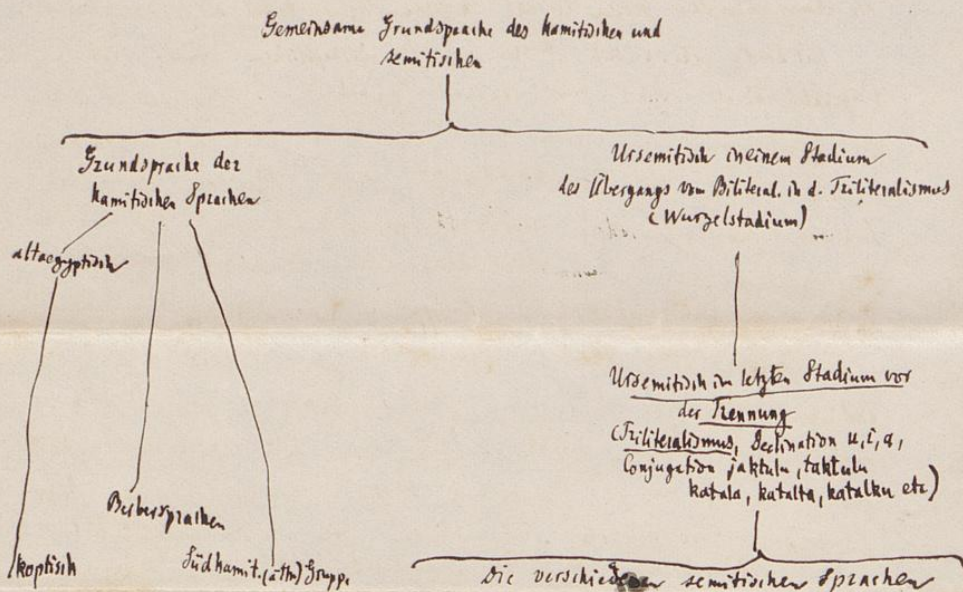 Gemeinsame Grundsprache des hamitischen und
semitischen
Grundsprache der
hamitischen Sprachen
altaegyptisch
koptisch
Berbersprachen
Südhamit. (äth) Gruppe
Ursemitisch in einem Stadium
des Übergangs vom Biliteral. in d. Triliteralismus
(Wurzelstadium)
Ursemitisch im letzten Stadium vor
der Trennung
(Triliteralismus, Declination u, i, a,
Conjugation jaktulu, taktulu
katala, katalta, katalku etc)
Die verschiedenen semitischen Sprachen